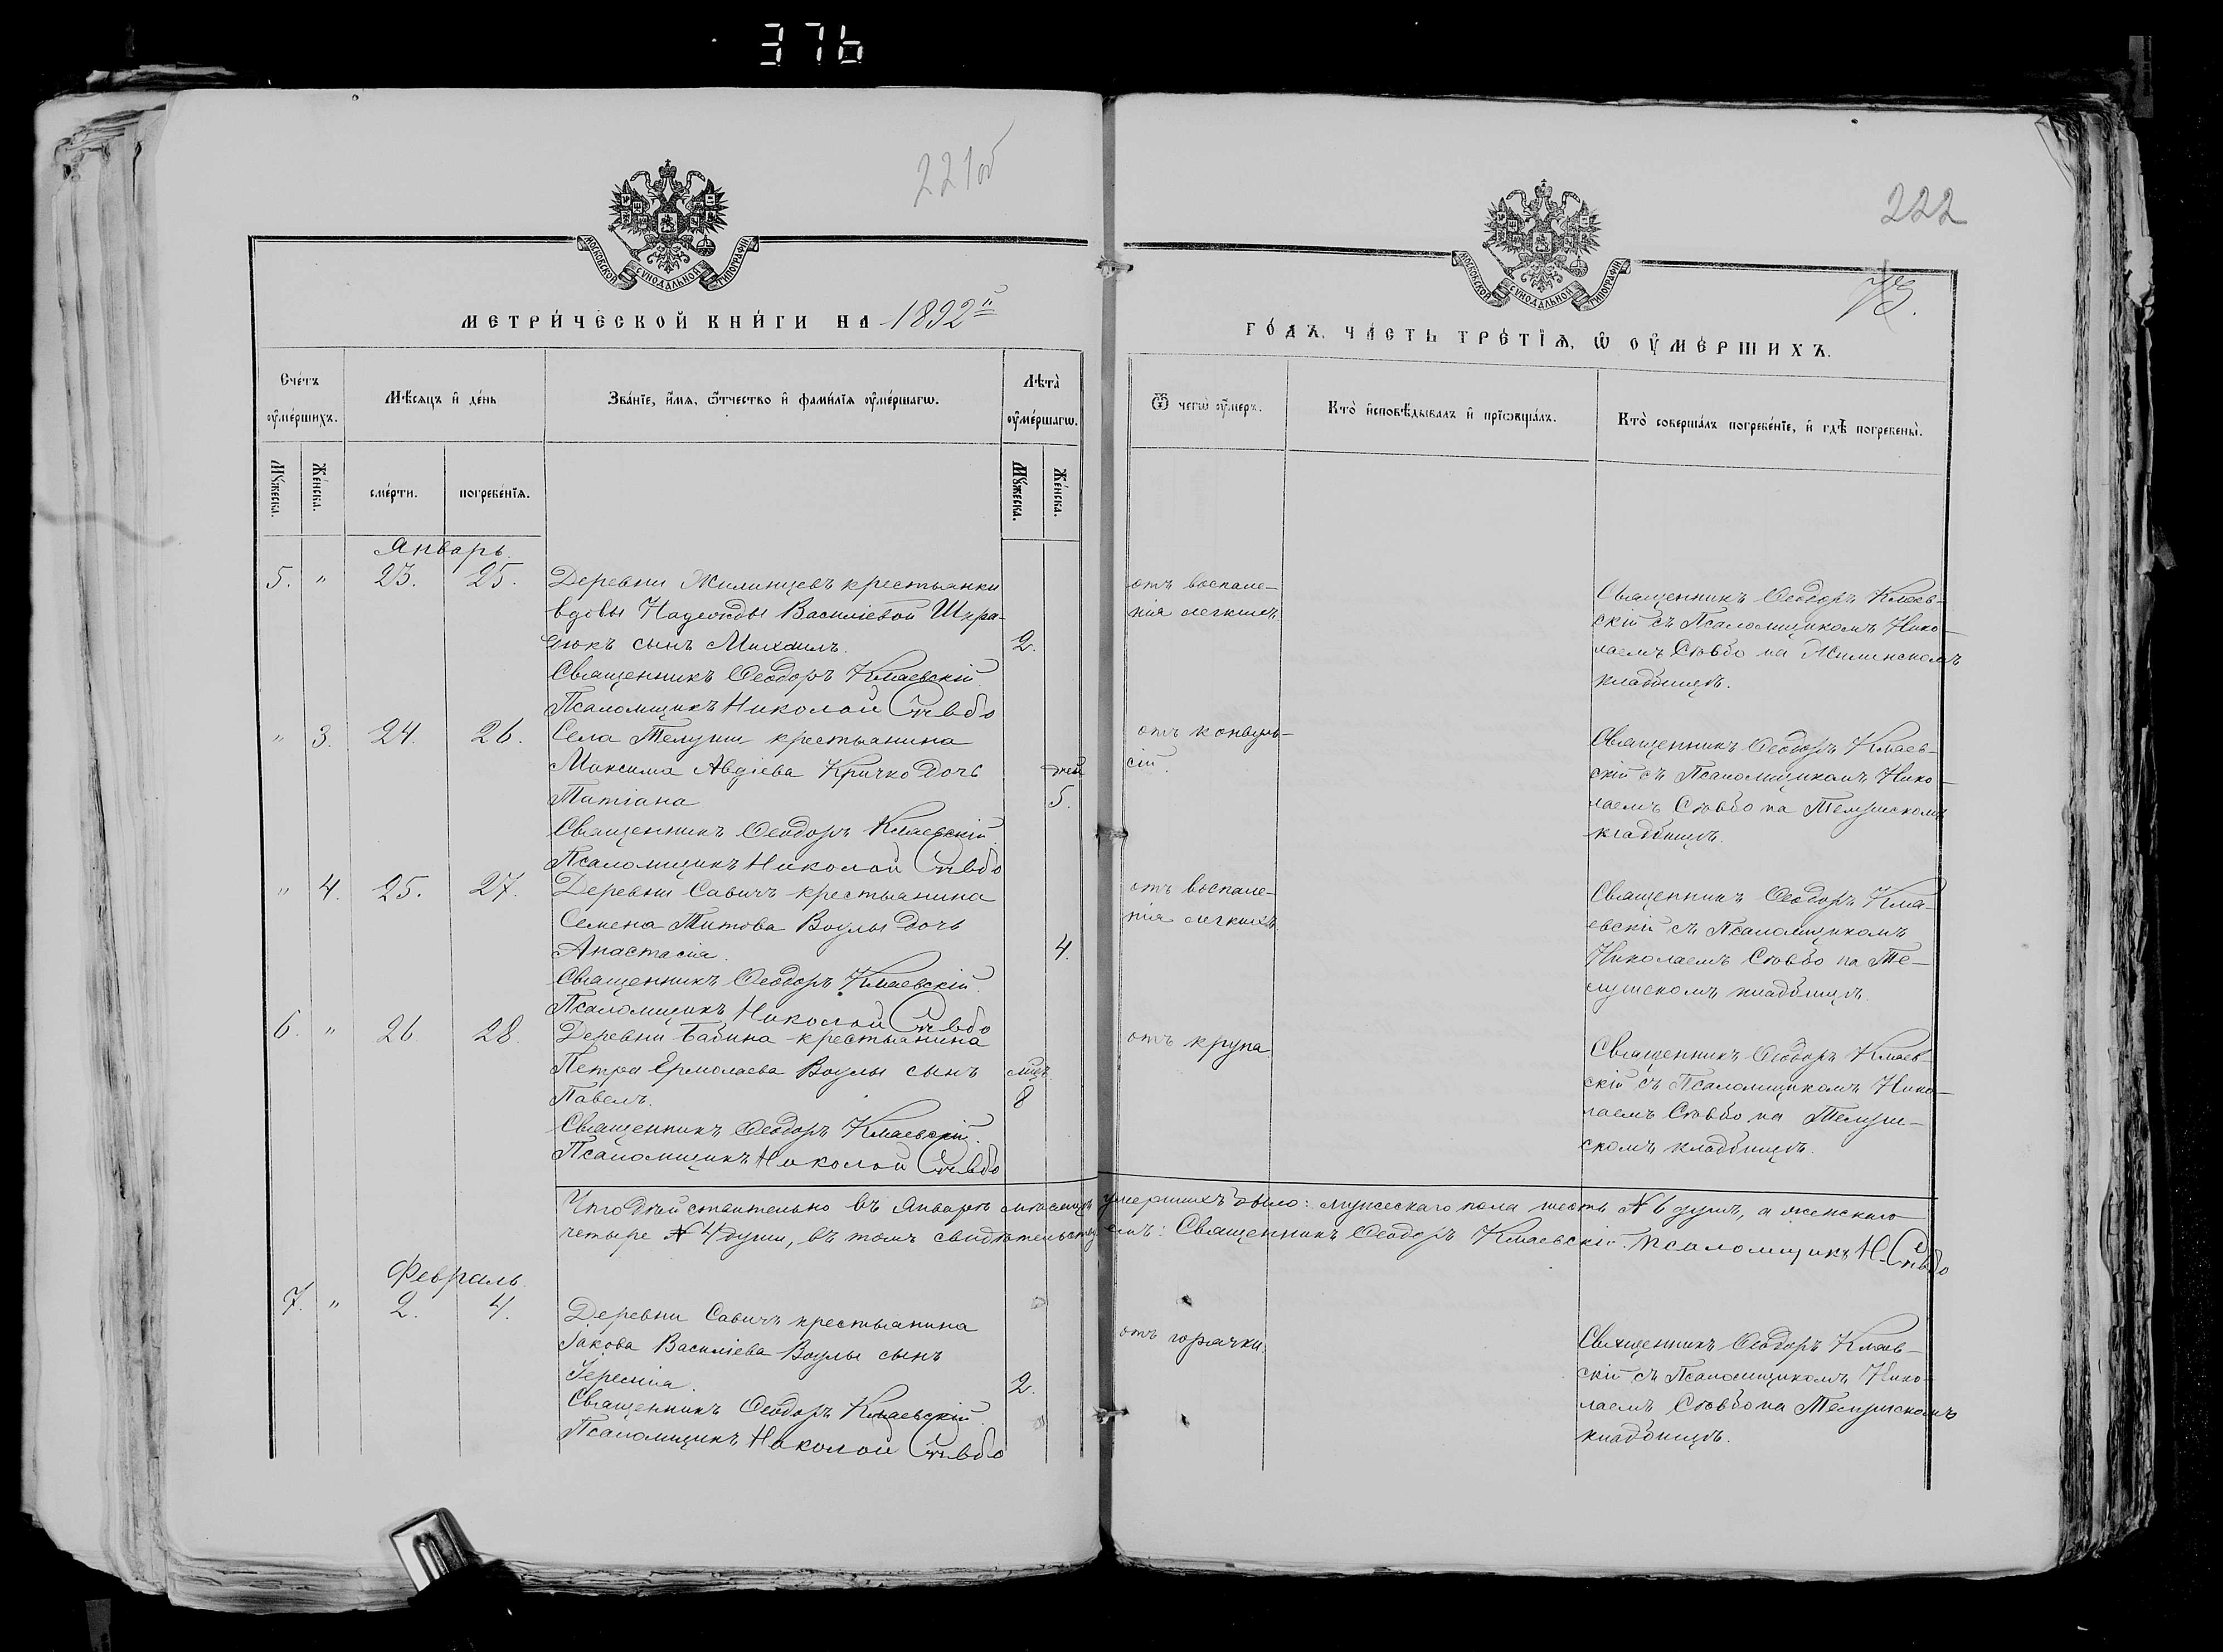 376
221об
222
МОСКОВСКОЙ СУНОДАЛЬНОЙ ТИПОГРАФІИ
МОСКОВСКОЙ СУНОДАЛЬНОЙ ТИПОГРАФІИ
МЕТРИ́ЧЕСКОЙ КНИ́ГИ НА 1892й
ГО́ДЪ, ЧА́СТЬ ТРЕ́ТІѦ, Ѡ ОУМЕ́РШИХЪ.
Сче́тъ оумершихъ.
Мѣсяцъ и день
Званіе, имя, отчество и фамилія оумершагѡ.
Лѣта оумершагѡ.
Ѿ чегѡ оумеръ.
Кто исповѣдывалъ и пріобщалъ.
Кто совершалъ погребеніе, и гдѣ погребены.
Мꙋжеска.
Женска.
смерти.
погребенія.
Мꙋжеска.
Женска.
Январь.
5. " 23. 25.
Деревни Жилинцевъ крестьянки
вдовы Надежды Василіевой Шкра-
дюкъ сынъ Михаилъ. 2.
Священникъ Ѳеодоръ Кмаевскій.
Псаломщикъ Николай Стѣвбо
отъ воспале-
нія легкихъ
Священникъ Ѳеодоръ Кмаев-
скій съ Псаломщикомъ Нико-
лаемъ Стѣвбо на Жилинскомъ
кладбищѣ.
" 3. 24. 26.
Села Телуши крестьянина
Максима Авдіева Кричко дочь дней
Татіана 5.
Священникъ Ѳеодоръ Кмаевскій.
Псаломщикъ Николай Стѣвбо
отъ конвуль-
сій.
Священникъ Ѳеодоръ Кмаев-
скій съ Псаломщикомъ Нико-
лаемъ Стѣвбо на Телушскомъ
кладбищѣ.
" 4. 25. 27.
Деревни Савичъ крестьянина
Семена Титова Воулы дочь
Анастасія. 4.
Священникъ Ѳеодоръ Кмаевскій.
Псаломщикъ Николай Стѣвбо
отъ воспале-
нія легкихъ
Священникъ Ѳеодоръ Кма-
евскій съ Псаломщикомъ
Николаемъ Стѣвбо на Те-
лушскомъ кладбищѣ.
6. " 26 28.
Деревни Бабина крестьянина
Петра Ермолаева Воулы сынъ мцъ.
Павелъ. 8
Священникъ Ѳеодоръ Кмаевскій.
Псаломщикъ Николай Стѣвбо
отъ крупа.
Священникъ Ѳеодоръ Кмаев-
скій съ Псаломщикомъ Нико-
лаемъ Стѣвбо на Телуш-
скомъ кладбищѣ.
Что дѣйствительно въ Январѣ мѣсяцѣ умершихъ было: мужескаго пола шесть № 6 душъ, а женскаго
четыре № 4 души, въ томъ свидѣтельствуемъ: Священникъ Ѳеодоръ Кмаевскій. Псаломщикъ Н. Стѣвбо
Февраль.
7. " 2. 4.
Деревни Савичъ крестьянина
Іакова Василіева Воулы сынъ
Іеремія. 2.
Священникъ Ѳеодоръ Кмаевскій.
Псаломщикъ Николай Стѣвбо
отъ горячки.
Священникъ Ѳеодоръ Кмаев-
скій съ Псаломщикомъ Нико-
лаемъ Стѣвбо на Телушскомъ
кладбищѣ.